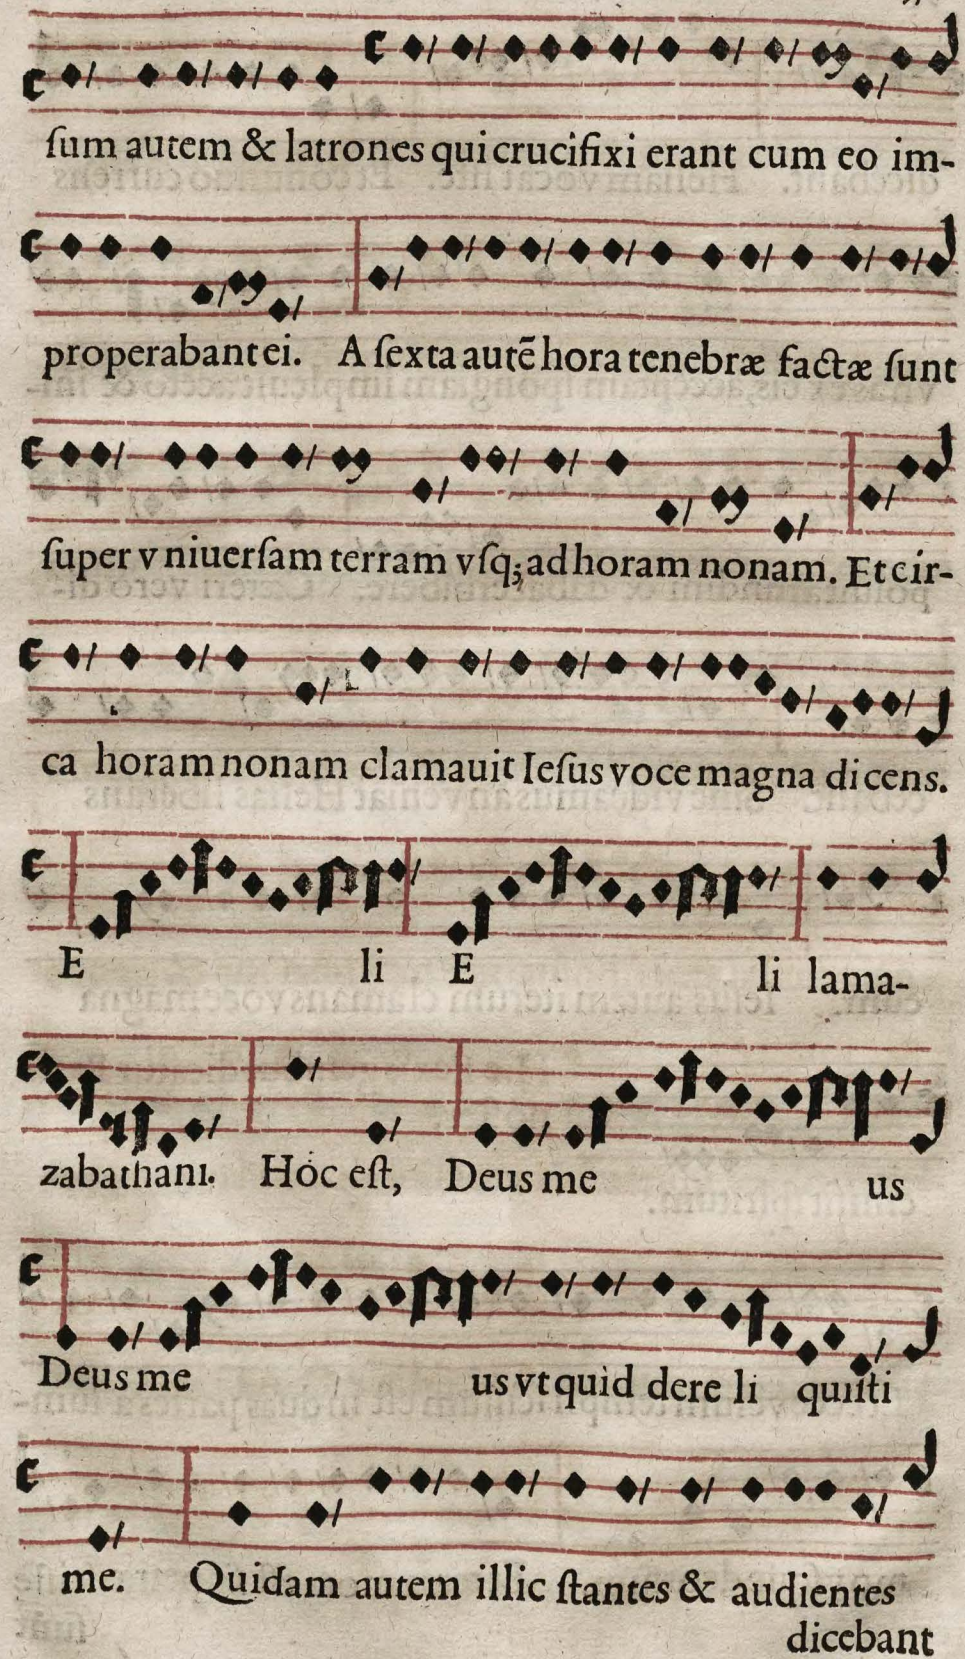 ſum autem & latrones qui crucifixi erant cum eo im-
properabant ei. A ſexta autẽ hora tenebræ factæ ſunt
ſuper vniuerſam terram vſq; ad horam nonam. Et cir-
ca horam nonam clamauit Ieſus voce magna dicens.
E li E li lama-
zabathani. Hoc eſt, Deus me us
Deus me us vt quid dere li quiſti
me. Quidam autem illic ſtantes & audientes
dicebant